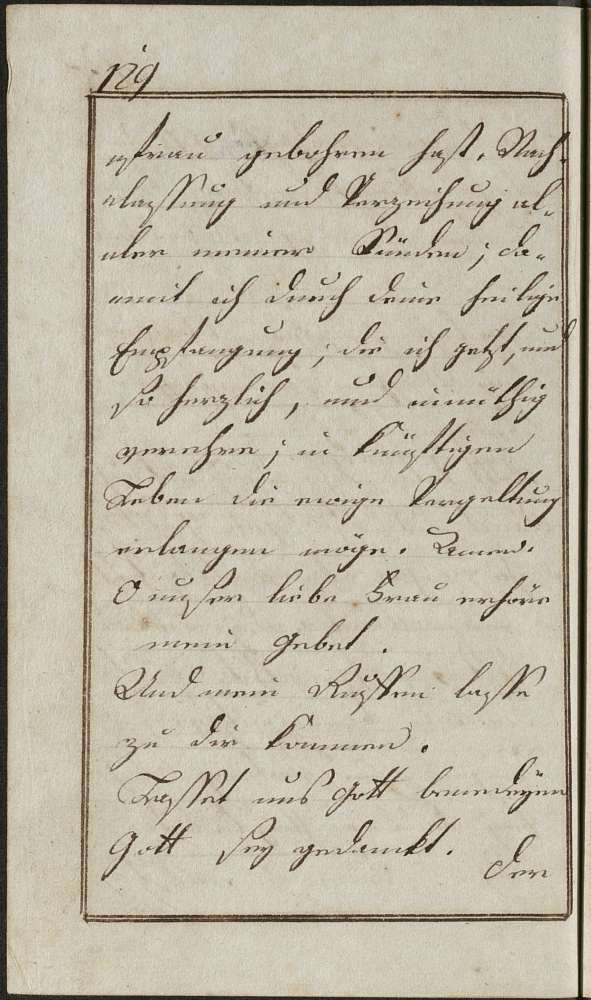 129
gfrau gebohren hast, Nach-
lassung und Verzeihung al-
ler meiner Sünden; da-
mit ich durch deine heilige
Empfangung; die ich jetzt, und
so herzlich, und
verehre; in künfftigen
Leben die ewige Vergeltung
erlangen möge. Amen.
O unser liebe Frau erhöre
mein Gebet.
Und mein Ruffen lasse
zu dir kommen.
Lasset uns Gott benedeyen
Gott sey gedankt.
Der